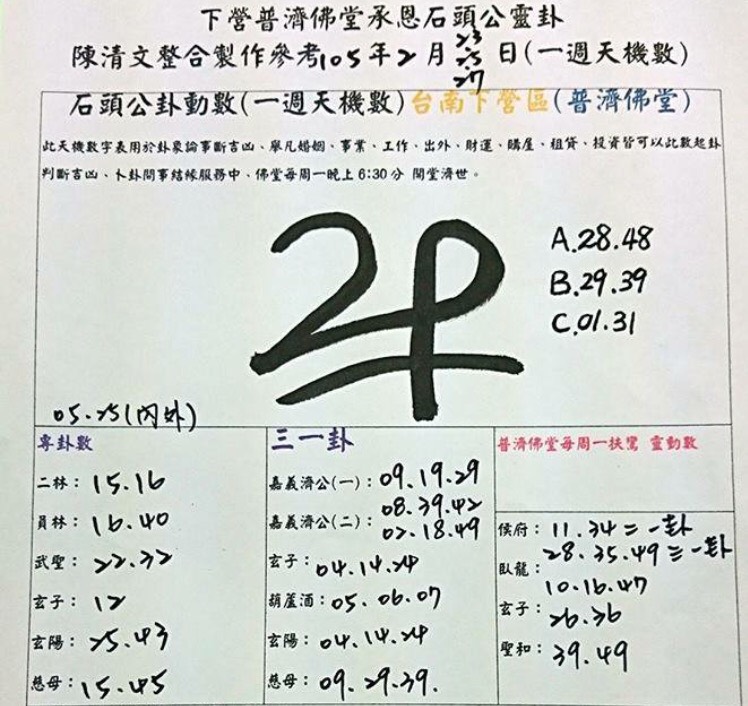 下營普濟佛堂承恩石頭公靈卦
陳清文整合製作參考105年2月23.25.27日(一週天機數)
石頭公卦動數(一週天機數)台南下營區(普濟佛堂)
此天機數字表用於卦象論事斷吉凶、舉凡婚姻、事業、工作、出外、財運、購屋、租貸、投資皆可以此數起卦
判斷吉凶、卜卦問事結緣服務中、佛堂每周一晚上6:30分 開堂濟世。
A.28.48
B.29.39
C.01.31
05.25(內外)
專卦數
二林：15.16
員林：16.40
武聖：22.32
玄子：12
玄陽：25.43
慈母：15.45
三一卦
嘉義濟公(一)：09.19.29
08.39.42
嘉義濟公(二)：02.18.49
玄子：04.14.24
葫蘆酒：05.06.07
玄陽：04.14.24
慈母：09.29.39.
普濟佛堂每周一扶鸞 靈動數
侯府：11.34=一卦
28.35.49三一卦
臥龍：10.16.47
玄子：26.36
聖和：39.49